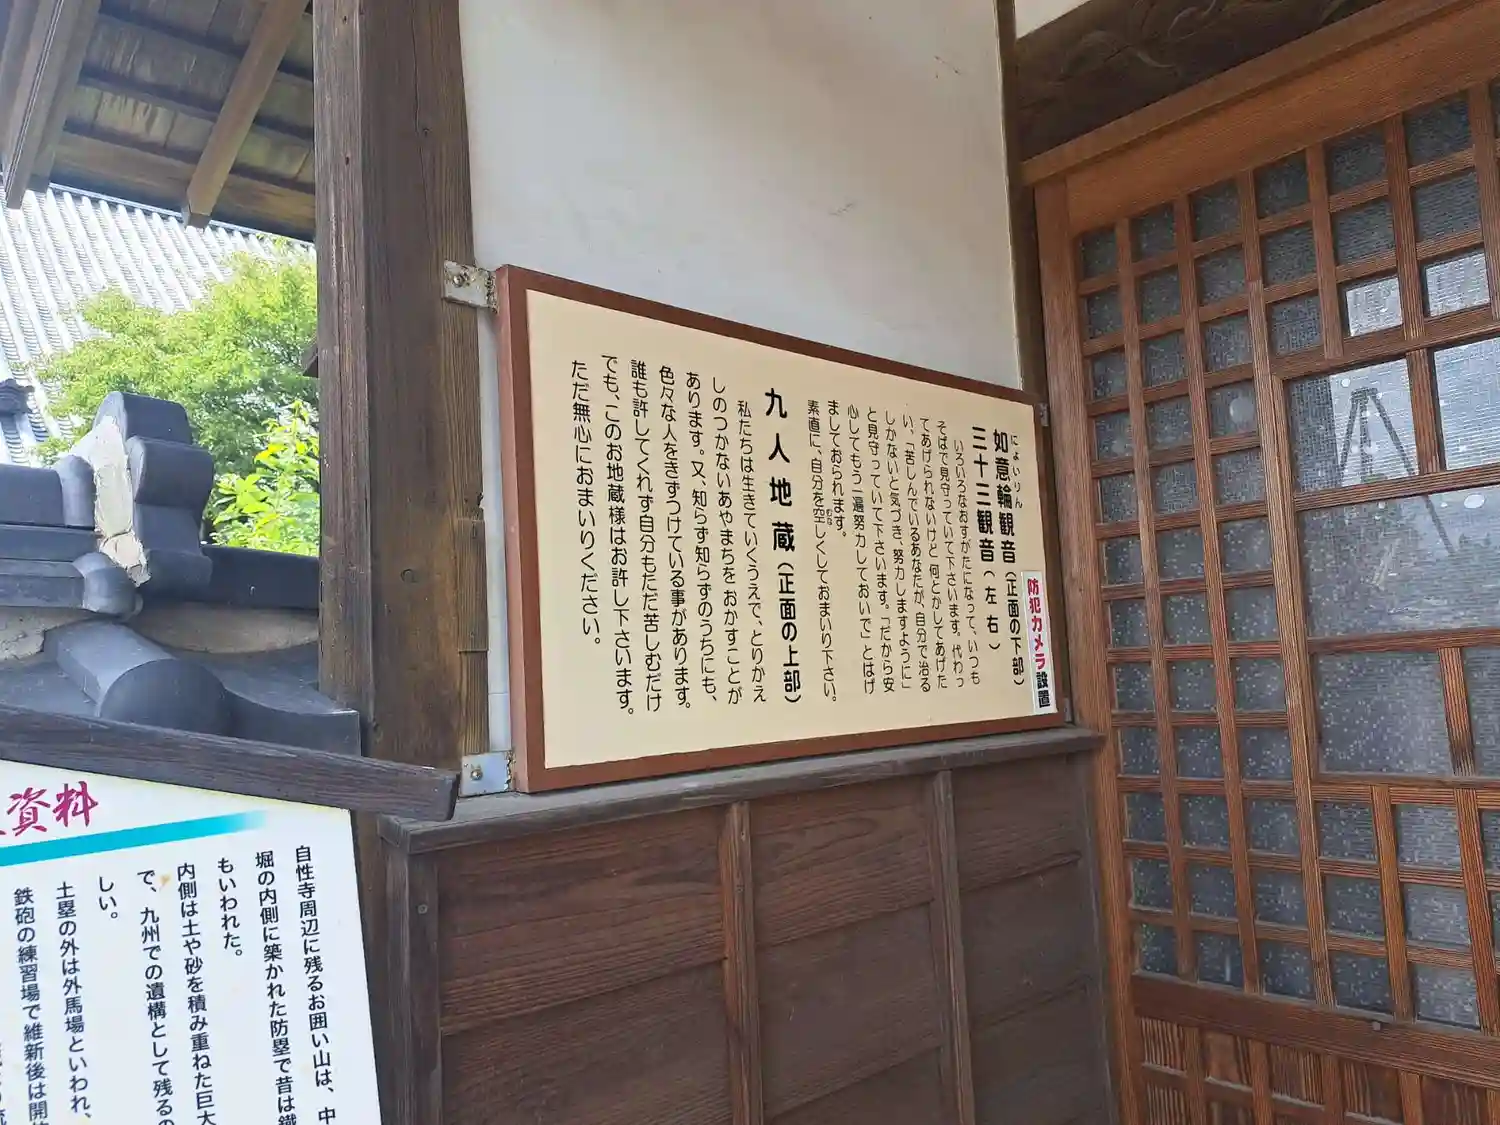 によいりん
如意輪観音(正面の下部)
三十三観音(左右)
いろいろなおすがたになって、いつも
そばで見守っていて下さいます。代わっ
てあげられないけど 何とかしてあげた
い、「苦しんでいるあなたが、自分で治る
しかないと気づき、努力しますように」
と見守っていて下さいます。「だから安
心してもう一遍努力しておいで」とはげ
ましておられます。
素直に、自分を空しくしておまいり下さい。
むな
九人地蔵(正面の上部)
私たちは生きていくうえで、とりかえ
しのつかないあやまちを おかすことが
あります。又、知らず知らずのうちにも、
色々な人をきずつけている事があります。
誰も許してくれず自分もただ苦しむだけ
でも、このお地蔵様はお許し下さいます。
ただ無心におまいりください。
防犯カメラ設置
資料
自性寺周辺に残るお囲い山は、中
堀の内側に築かれた防塁で昔は鐵
もいわれた。
内側は土や砂を積み重ねた巨大
で、九州での遺構として残るの
しい。
土塁の外は外馬場といわれ、
鉄砲の練習場で維新後は開